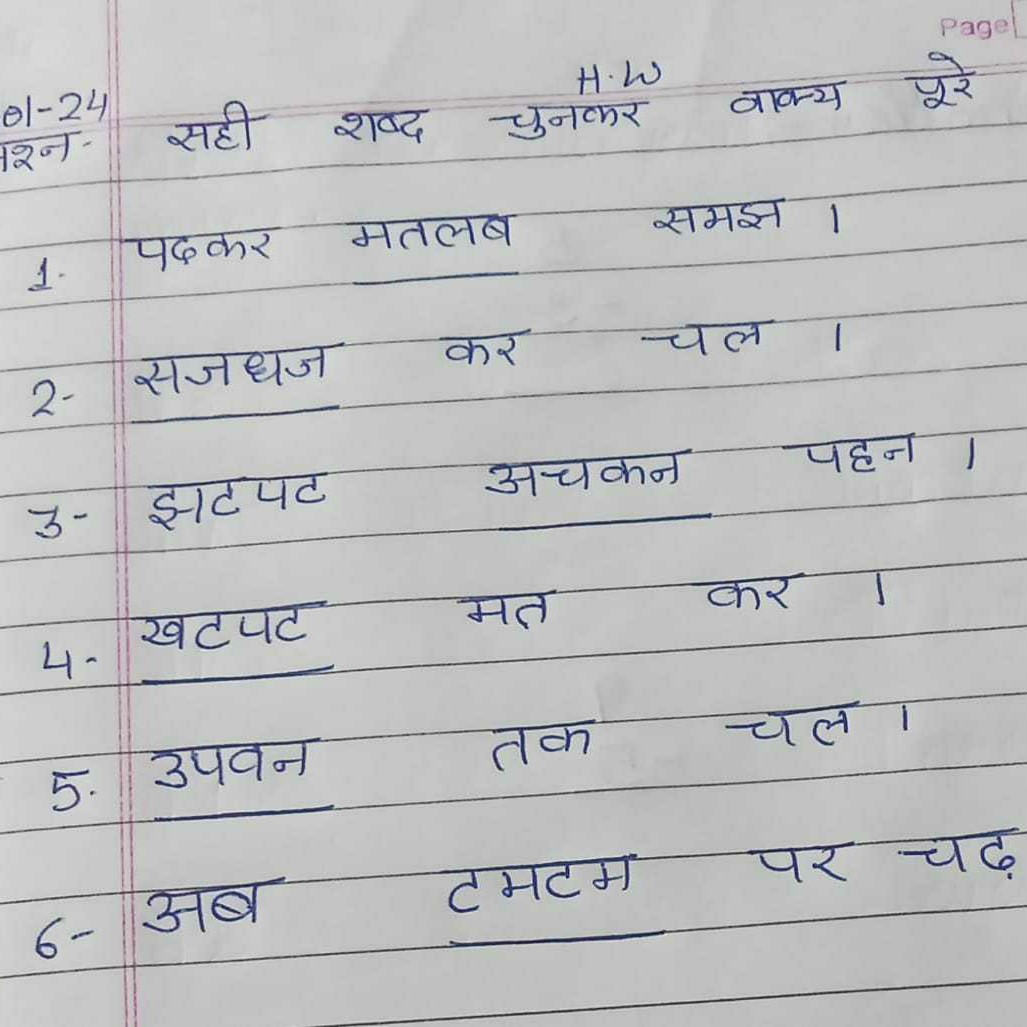 Page
H.W
01-24
प्रश्न- सही शब्द चुनकर वाक्य पूरे
1. पढकर मतलब समझ ।
2- सजधज कर चल ।
3- झटपट अचकन पहन ।
4- खटपट मत कर ।
5. उपवन तक चल ।
6- अब टमटम पर चढ़